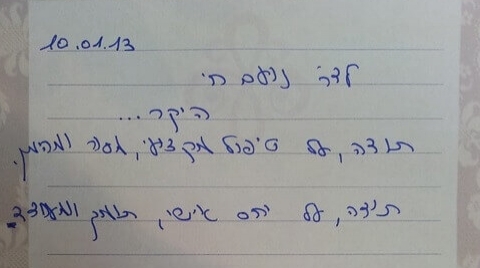 10.01.13
לדר' נועם חי
היקר...
תודה, על טיפול מקצועי, מסור ומהימן.
תודה, על יחס אישי, תומך ומעודד.